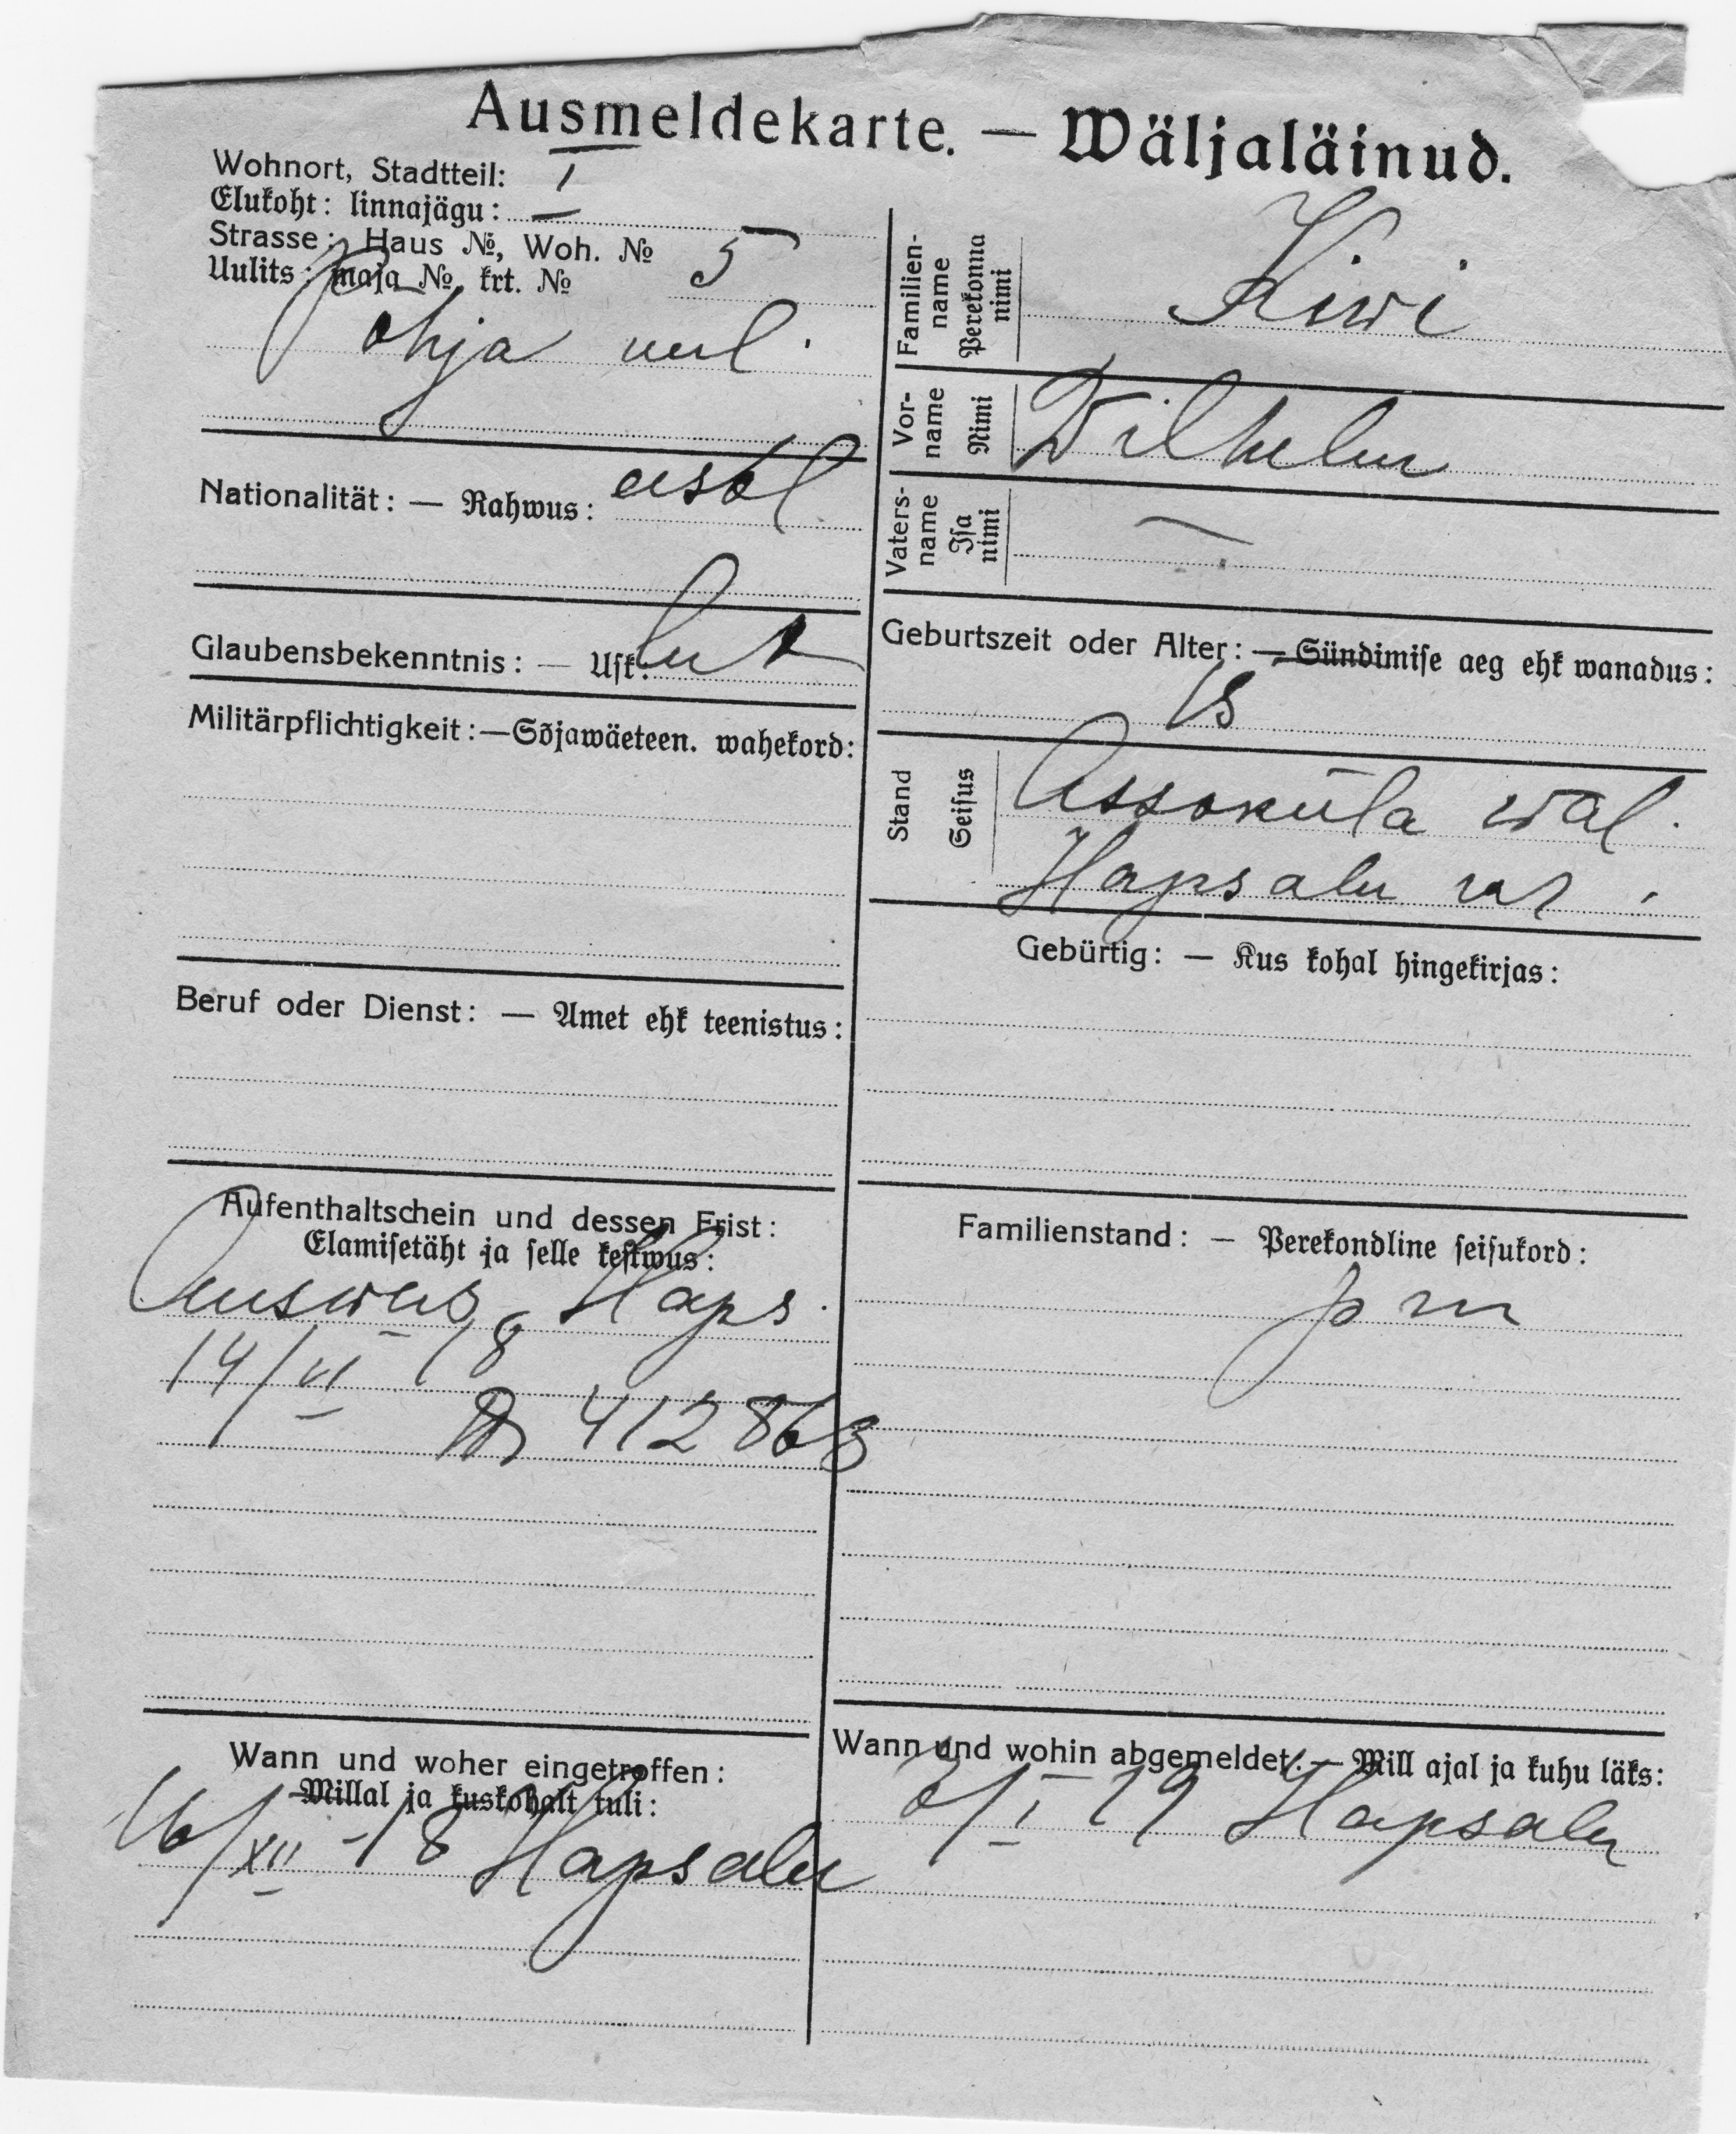 Ausmeldekarte. — Wäljaläinud.
Wohnort, Stadtteil: I
Elukoht: linnajägu:
Strasse: Haus №, Woh. № 5
Uulits: maja №, krt. №
Pohja uul.
Nationalität: — Rahwus: eestl
Glaubensbekenntnis: — Usk: lut
Militärpflichtigkeit: — Sõjawäeteen. wahekord:
Beruf oder Dienst: — Amet ehk teenistus:
Aufenthaltschein und dessen Frist:
Elamisetäht ja selle kestwus:
Ausweis Haps.
14/VI 18
412863
Wann und woher eingetroffen:
Millal ja kuskohalt tuli:
16/XII -18 Hapsalu
Familien-
name
Perekonna
nimi
Kiwi
Vor-
name
Nimi
Wilhelm
Vaters-
name
Isa
nimi
—
Geburtszeit oder Alter: — Sündimise aeg ehk wanadus:
18
Stand
Seisus
Assoküla wal.
Hapsalu
Gebürtig: — Kus kohal hingekirjas:
Familienstand: — Perekondline seisukord:
Wann und wohin abgemeldet: — Mill ajal ja kuhu läks:
3/I 19 Hapsalu